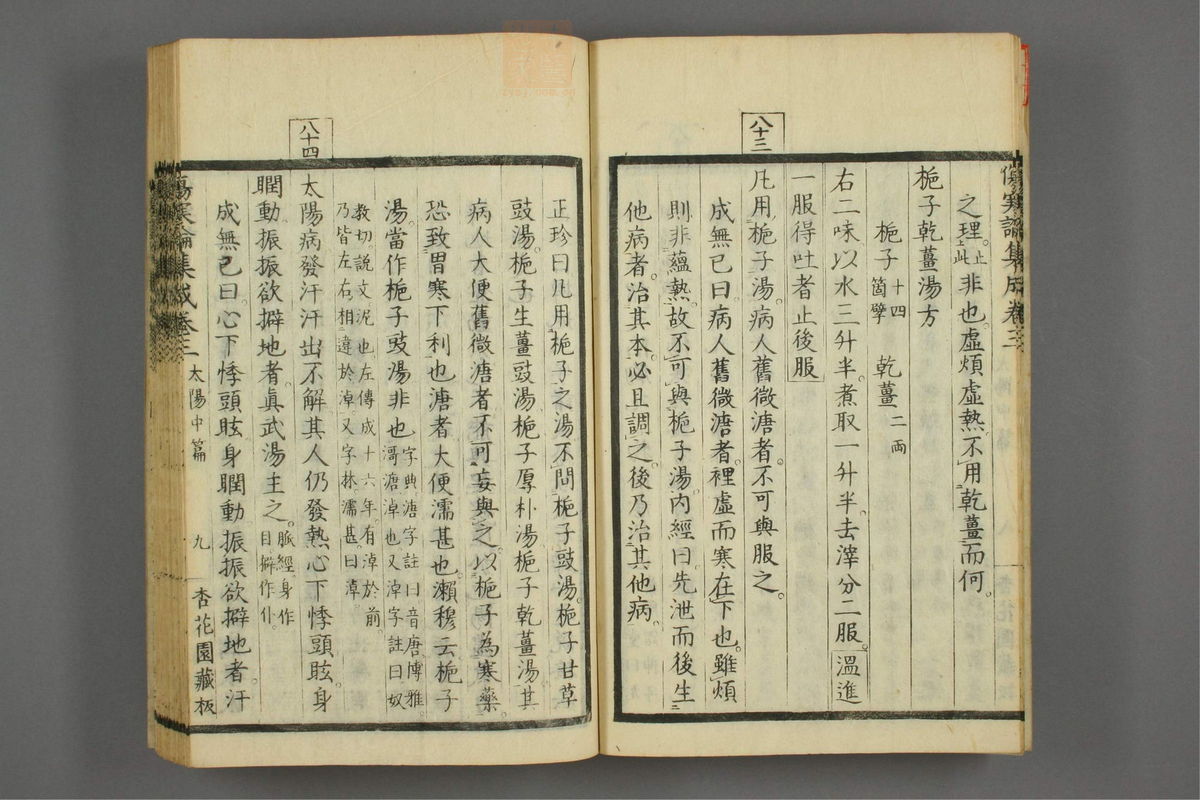 傷寒論集成卷三
之理。上止此非也。虛煩虛熱。不用乾薑而何。
梔子乾薑湯方
梔子十四箇擘　乾薑二兩
右二味以水三升半。煮取一升半。去滓分二服。溫進
一服得吐者止後服
八十三
凡用梔子湯。病人舊微溏者。不可與服之。
成無已曰病人舊微溏者。裡虛而寒在下也。雖煩
則非蘊熱。故不可與梔子湯。內經曰先泄而後生
他病者。治其本。必且調之。後乃治其他病。
正珍曰凡用梔子之湯。不問梔子豉湯。梔子甘草
豉湯。梔子生薑豉湯。梔子厚朴湯。梔子乾薑湯。其
病人大便舊微溏者。不可妄與之。以梔子為寒藥。
恐致胃寒下利也。溏者大便濡甚也。瀨穆云梔子
湯。當作梔子豉湯非也。字典溏字註曰音唐。博雅。滒溏淖也又淖字註曰奴
教切。說文泥也。左傳成十六年。有淖於前。乃皆左右相違於淖。又字林濡甚。曰淖。
八十四
太陽病發汗。汗出不解。其人仍發熱。心下悸頭眩。身
瞤動。振振欲擗地者。眞武湯主之。脈經身作目。擗作仆。
成無已曰。心下悸頭眩身瞤動。振振欲擗地者。汗
傷寒論集成卷三　太陽中篇　九　杏花園藏板